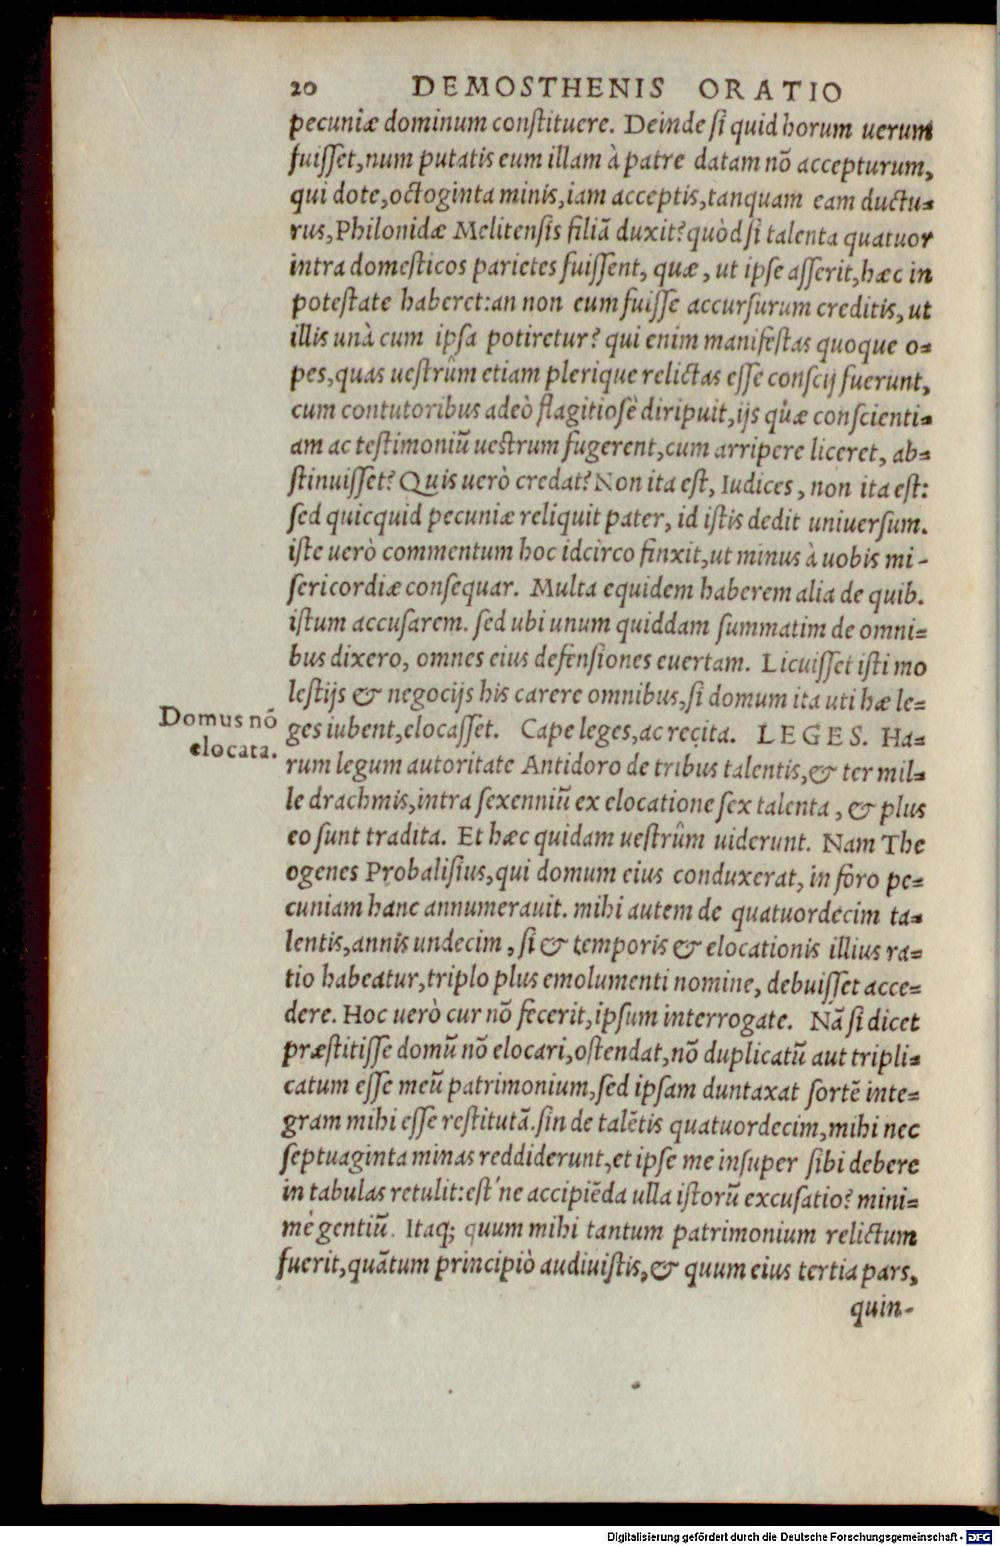 20 DEMOSTHENIS ORATIO
pecuniæ dominum constituere. Deinde si quid horum uerum
fuisset, num putatis eum illam à patre datam nõ accepturum,
qui dote, octoginta minis, iam acceptis, tanquam eam ductu-
rus, Philonidæ Melitensis filiã duxit? quòd si talenta quatuor
intra domesticos parietes fuissent, quæ, ut ipse asserit, hæc in
potestate haberet: an non eum fuisse accursurum creditis, ut
illis unà cum ipsa potiretur? qui enim manifestas quoque o-
pes, quas uestrûm etiam plerique relictas esse conscij fuerunt,
cum contutoribus adeò flagitiosè diripuit, ijs quæ conscienti-
am ac testimoniũ uestrum fugerent, cum arripere liceret, ab-
stinuisset? Quis uerò credat? Non ita est, Iudices, non ita est:
sed quicquid pecuniæ reliquit pater, id istis dedit uniuersum.
iste uerò commentum hoc idcirco finxit, ut minus à uobis mi-
sericordiæ consequar. Multa equidem haberem alia de quib.
istum accusarem. sed ubi unum quiddam summatim de omni-
bus dixero, omnes eius defensiones euertam. Licuisset isti mo
lestijs & negocijs his carere omnibus, si domum ita uti hæ le-
Domus nõ
elocata.
ges iubent, elocasset. Cape leges, ac recita. LEGES. Ha-
rum legum autoritate Antidoro de tribus talentis, & ter mil-
le drachmis, intra sexenniũ ex elocatione sex talenta, & plus
eo sunt tradita. Et hæc quidam uestrûm uiderunt. Nam The
ogenes Probalisius, qui domum eius conduxerat, in foro pe-
cuniam hanc annumerauit. mihi autem de quatuordecim ta-
lentis, annis undecim, si & temporis & elocationis illius ra-
tio habeatur, triplo plus emolumenti nomine, debuisset acce-
dere. Hoc uerò cur nõ fecerit, ipsum interrogate. Nã si dicet
præstitisse domũ nõ elocari, ostendat, nõ duplicatũ aut tripli-
catum esse meũ patrimonium, sed ipsam duntaxat sortẽ inte-
gram mihi esse restitutã. sin de talẽtis quatuordecim, mihi nec
septuaginta minas reddiderunt, et ipse me insuper sibi debere
in tabulas retulit: est'ne accipiẽda ulla istorũ excusatio? mini-
mè gentiũ. Itaq; quum mihi tantum patrimonium relictum
fuerit, quãtum principiò audiuistis, & quum eius tertia pars,
quin-
Digitalisierung gefördert durch die Deutsche Forschungsgemeinschaft - DFG